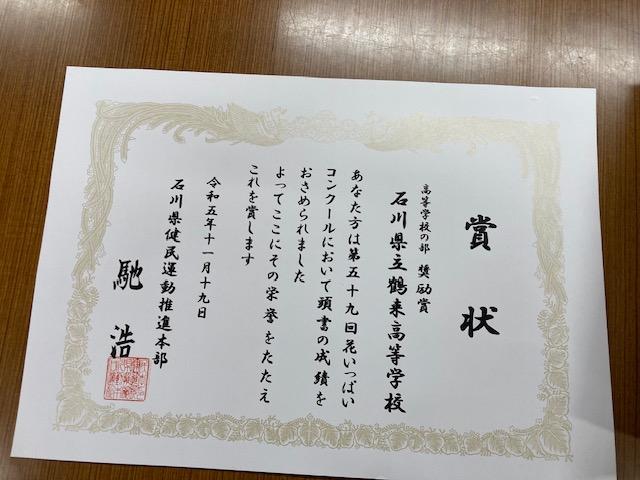 賞状
高等学校の部 奨励賞
石川県立鶴来高等学校
あなた方は第五十九回花いっぱい
コンクールにおいて頭書の成績を
おさめられました
よってここにその栄誉をたたえ
これを賞します
令和五年十一月十九日
石川県健民運動推進本部
馳浩